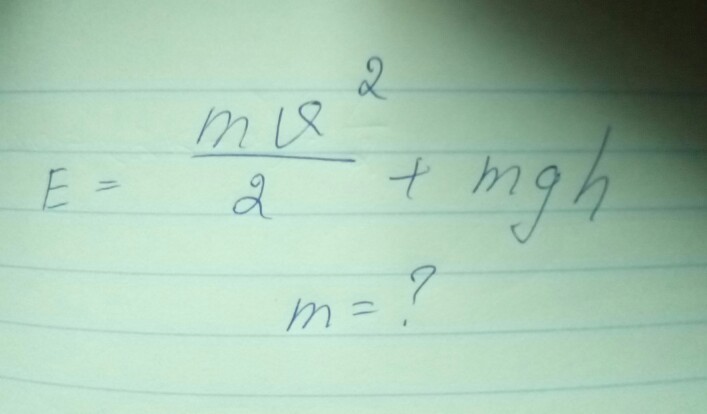 E = mv²/2 + mgh
m = ?